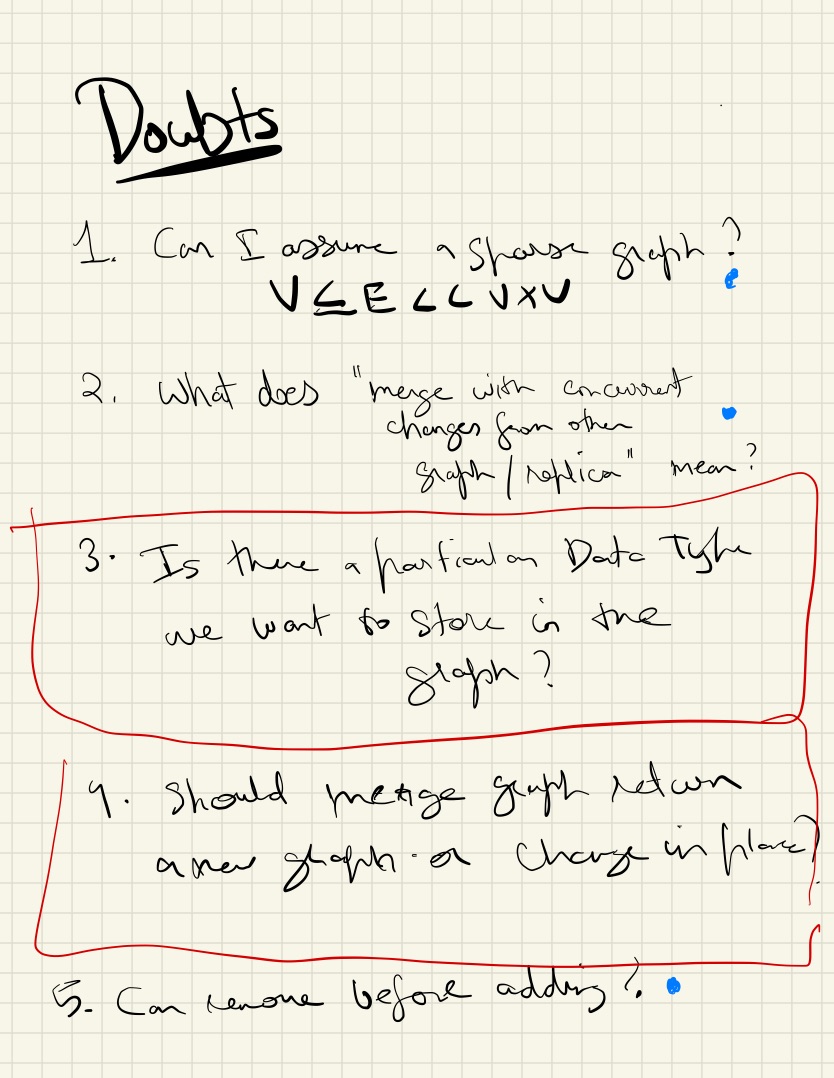 Doubts
1. Can I assume a sparse graph?
V ⊆ E << V×V
2. What does "merge with concurrent
changes from other
graph/replica" mean?
3. Is there a particular Data Type
we want to store in the
graph?
4. Should merge graph return
a new graph or change in place?
5. Can remove before adding?